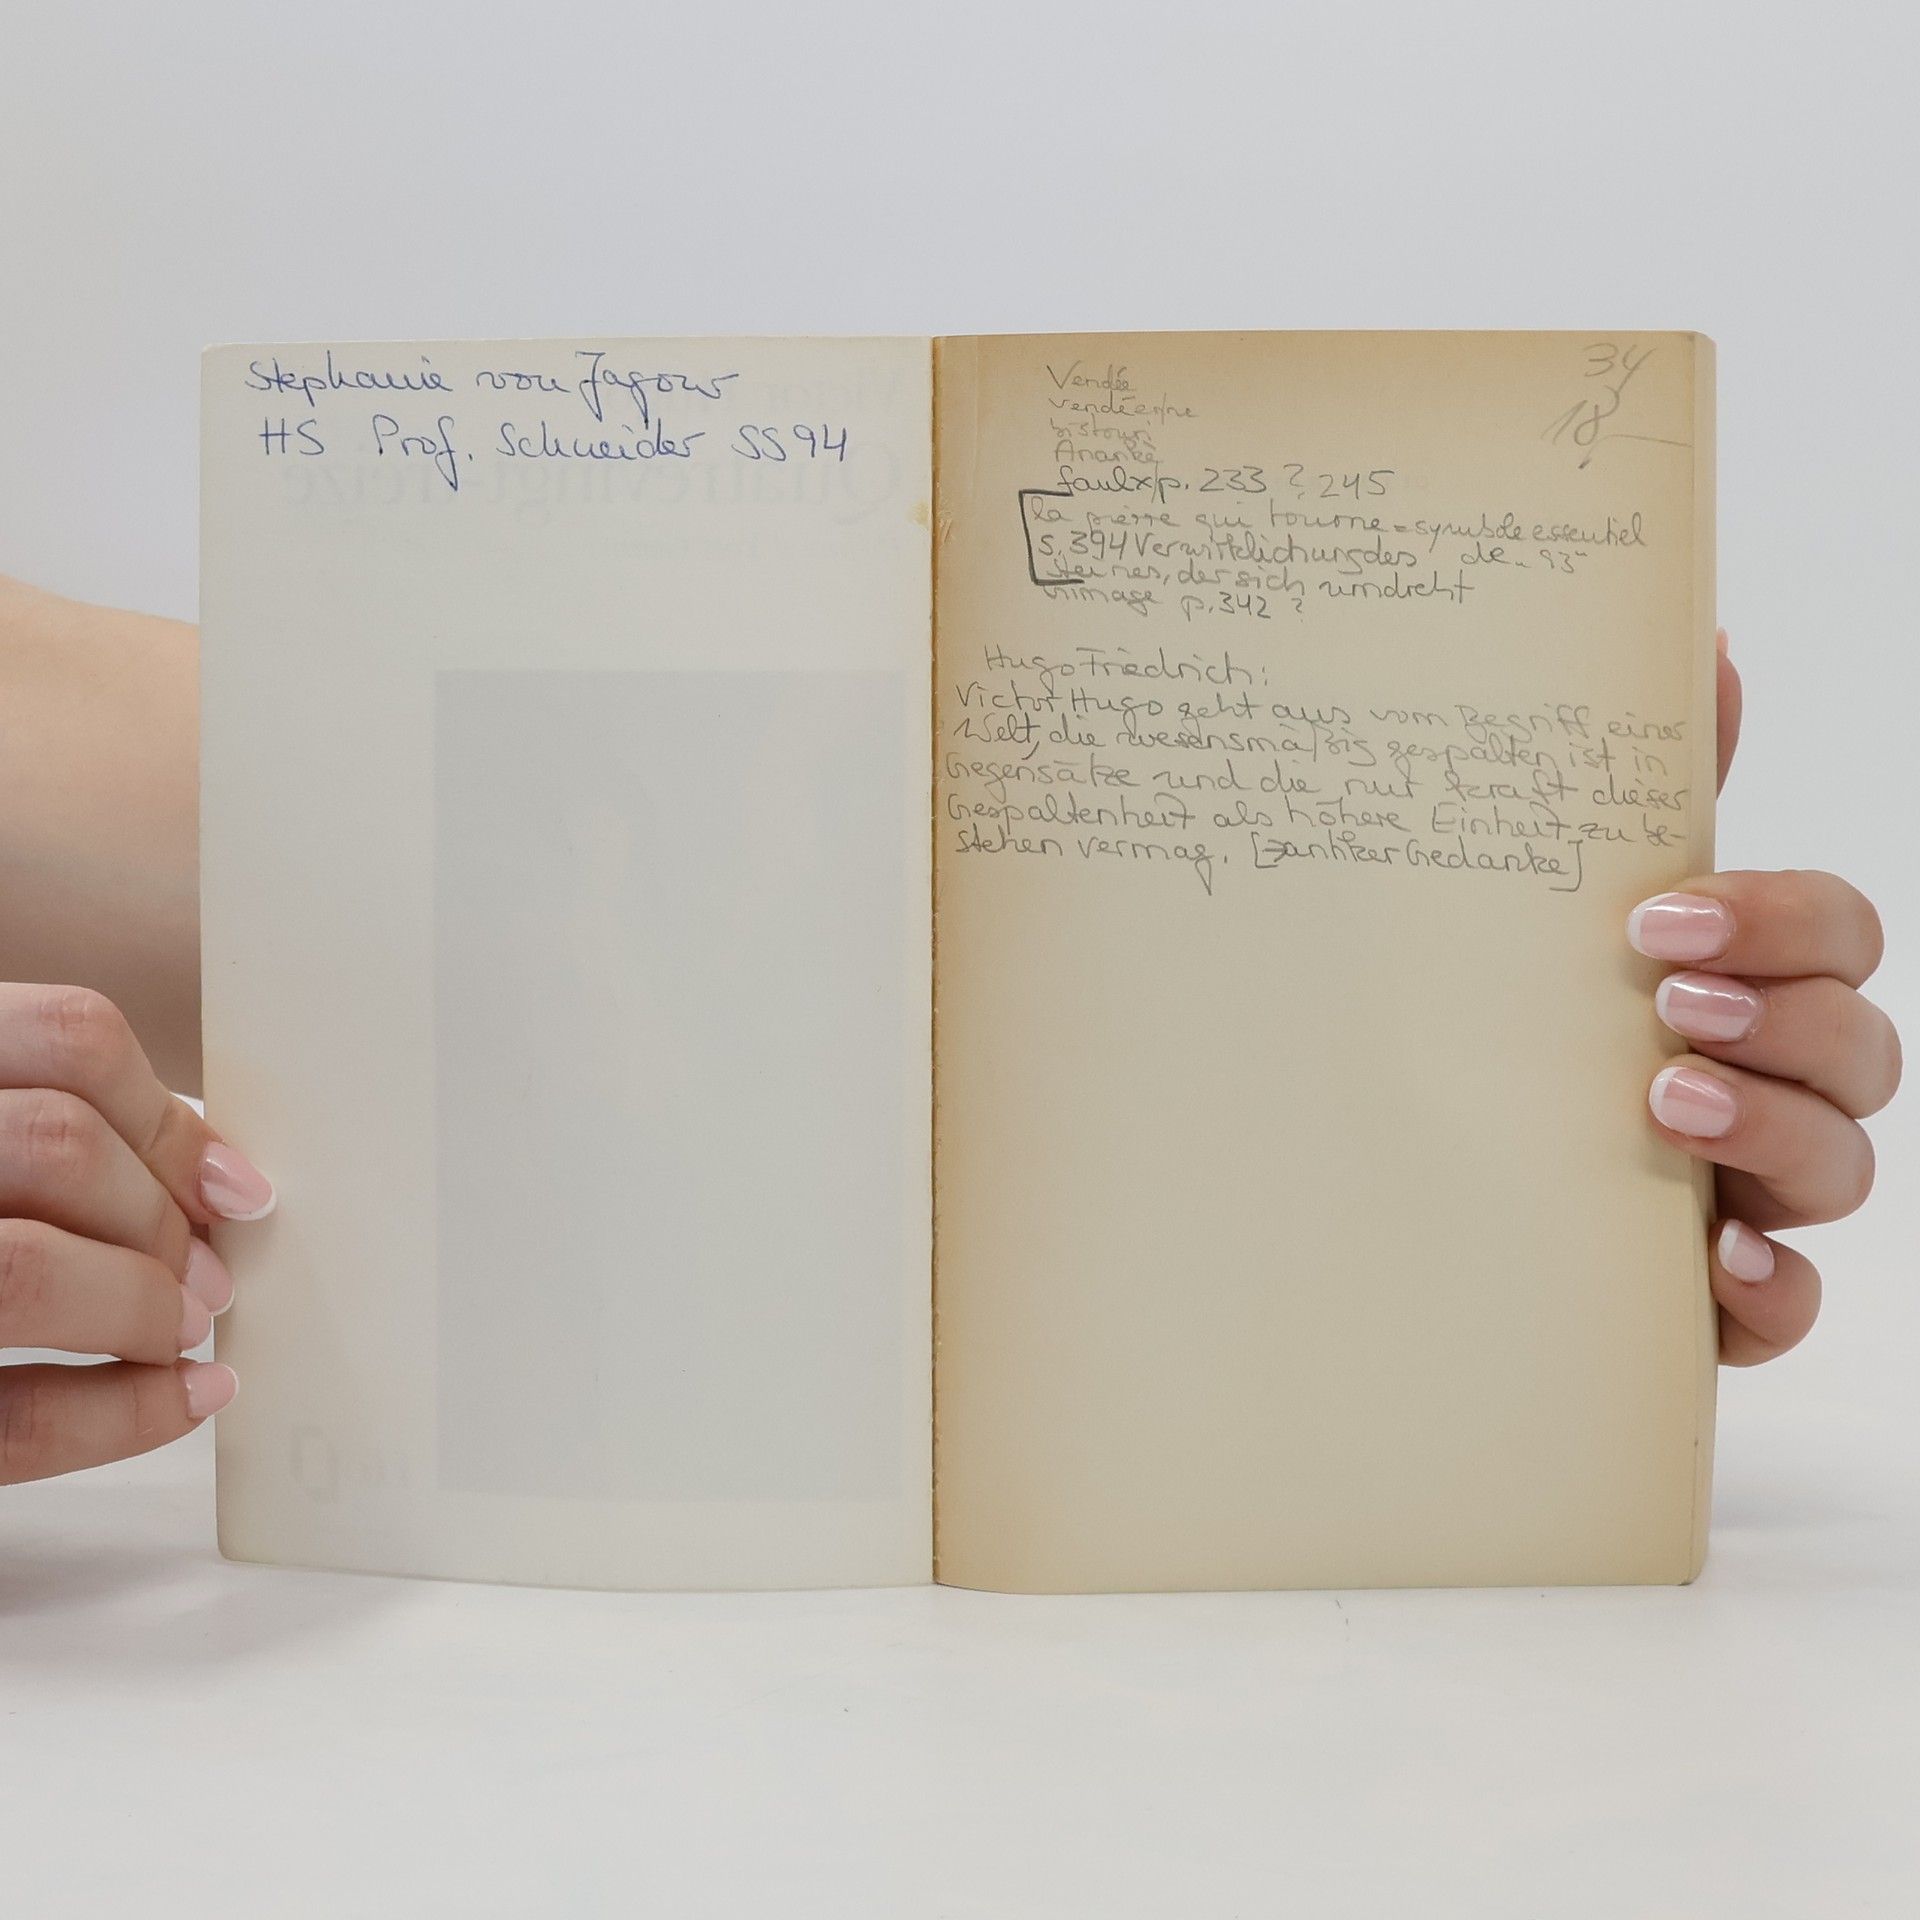 Stephanie von Jagow
HS Prof. Schneider SS 94
34
18
Vendée
vendéenne
bistouri
Ananké
faulx p. 233 ? 245
la pierre qui tourne = symbole essentiel
de „93“
S. 394 Verwirklichung des
Steines, der sich umdreht
Grimage p. 342 ?
Hugo Friedrich:
Victor Hugo geht aus vom Begriff einer
Welt, die wesensmäßig gespalten ist in
Gegensätze und die nur kraft dieser
Gespaltenheit als höhere Einheit zu be-
stehen vermag. [antiker Gedanke]
Quatrevingt-treize